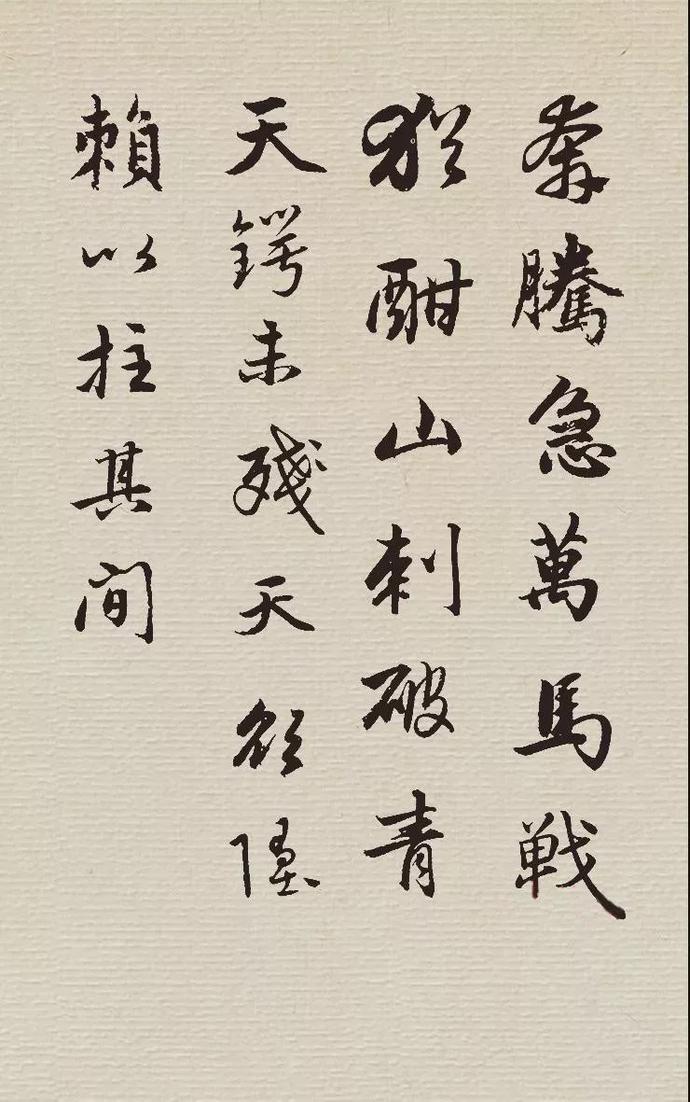 奔騰急萬馬戰
猶酣山刺破青
天鍔未殘天欲墮
賴以拄其间